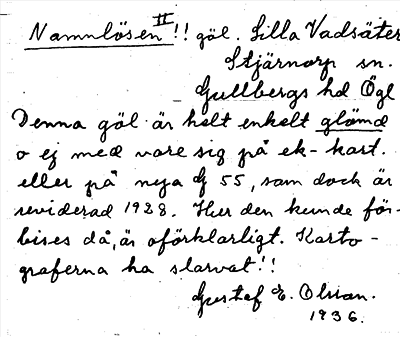 Namnlösen II !! göl. Lilla Vadsäter
Stjärnorp sn.
Gullbergs hd Ögl
Denna göl är helt enkelt glömd
o ej med vare sig på ek-kart.
eller på nya G 55, som dock är
reviderad 1928. Hur den kunde för-
bises då, är oförklarligt. Karto-
graferna ha slarvat!!
Gustaf E. Olsson.
1936.